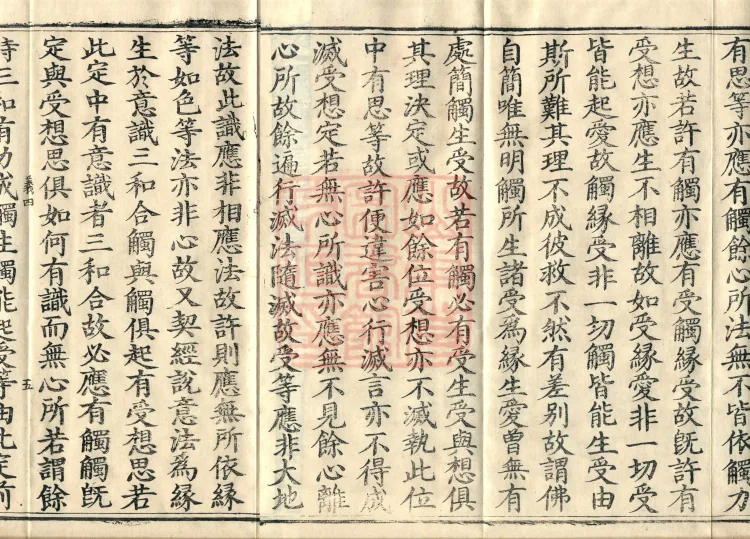 有思等亦應有觸餘心所法無不皆依觸力
生故若許有觸亦應有受觸緣受故旣許有
受想亦應生不相離故如受緣愛非一切受
皆能起愛故觸緣受非一切觸皆能生受由
斯所難其理不成彼救不然有差別故謂佛
自簡唯無明觸所生諸受爲緣生愛曾無有
處簡觸生受故若有觸必有受生受與想俱
其理決定或應如餘位受想亦不滅執此位
中有思等故許便違害心行滅言亦不得成
滅受想定若無心所識亦應無不見餘心離
心所故餘遍行滅法隨滅故受等應非大地
法故此識應非相應法故許則應無所依緣
等如色等法亦非心故又契經說意法爲緣
生於意識三和合觸與觸俱起有受想思若
此定中有意識者三和合故必應有觸觸旣
定與受想思俱如何有識而無心所若謂餘
義四 五
時三和有力成觸生觸能起受等由此定前